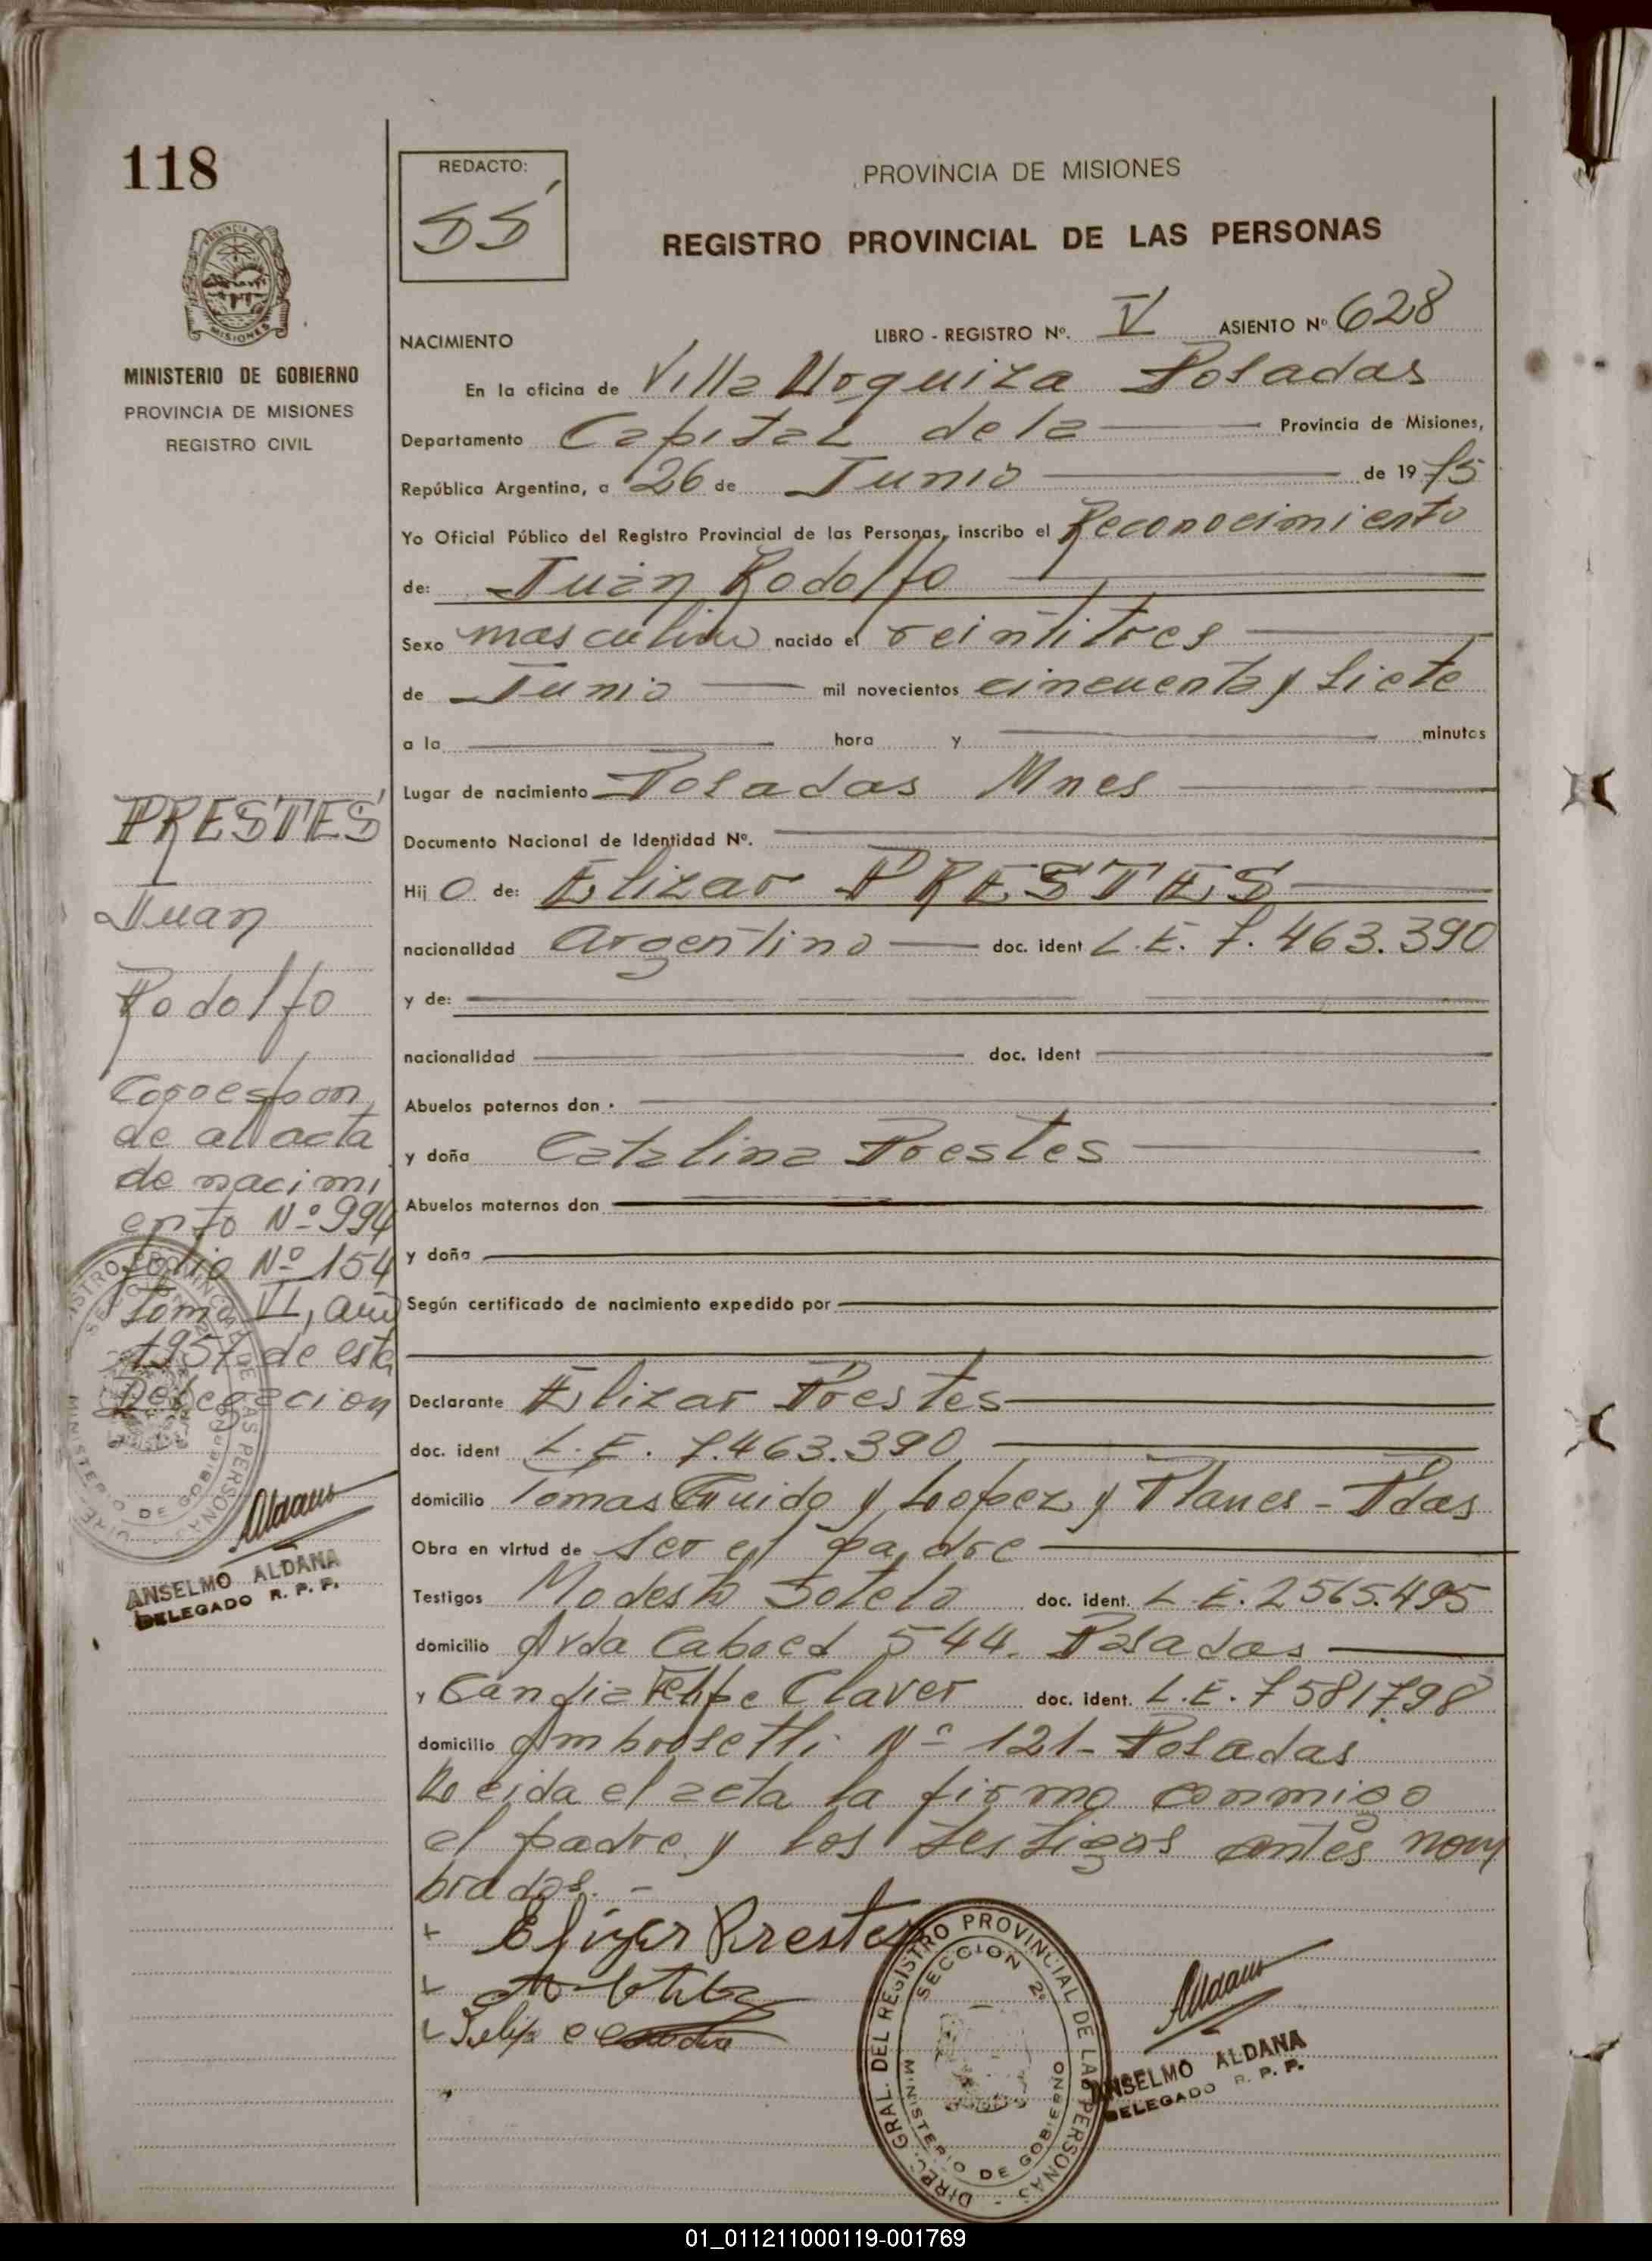 118
MINISTERIO DE GOBIERNO
PROVINCIA DE MISIONES
REGISTRO CIVIL
REDACTO:
PROVINCIA DE MISIONES
REGISTRO PROVINCIAL DE LAS PERSONAS
NACIMIENTO LIBRO - REGISTRO Nº. V ASIENTO Nº 628
En la oficina de Villa Urquiza Posadas
Departamento Capital de la Provincia de Misiones,
República Argentina, a 26 de Junio de 1975
Yo Oficial Público del Registro Provincial de las Personas, inscribo el Reconocimiento
de: Juan Rodolfo
Sexo masculino nacido el veintitres
de Junio mil novecientos cincuenta y siete
a la hora y minutos
Lugar de nacimiento Posadas Mnes
Documento Nacional de Identidad Nº.
Hij o de: Elizar PRESTES
nacionalidad Argentino doc. ident L.E. 7.463.390
y de:
nacionalidad doc. ident
Abuelos paternos don
y doña Catalina Prestes
Abuelos maternos don
y doña
Según certificado de nacimiento expedido por
Declarante Elizar Prestes
doc. ident L.E. 7.463.390
domicilio Tomas Guido y Lopez y Planes - Pdas
Obra en virtud de ser el padre
Testigos Modesto Sotelo doc. ident. L.E. 2565.495
domicilio Avda Cabred 544. Posadas
y Candia Felipe Claver doc. ident. L.E. 7581.798
domicilio Ambrosetti Nº 121- Posadas
Leida el acta la firma conmigo
el padre y los testigos antes nom
brados. -
Elizar Prestes
PRESTES
Juan
Rodolfo
Correspon
de al acta
de nacimi
ento Nº 994
folio Nº 154
tomo VI, año
1957 de esta
Delegacion
Aldana
ANSELMO ALDANA
DELEGADO R. P. P.
DIREC. GRAL. DEL REGISTRO PROVINCIAL DE LAS PERSONAS
SECCION 2º
MINISTERIO DE GOBIERNO
Aldana
ANSELMO ALDANA
DELEGADO R. P. P.
01_011211000119-001769